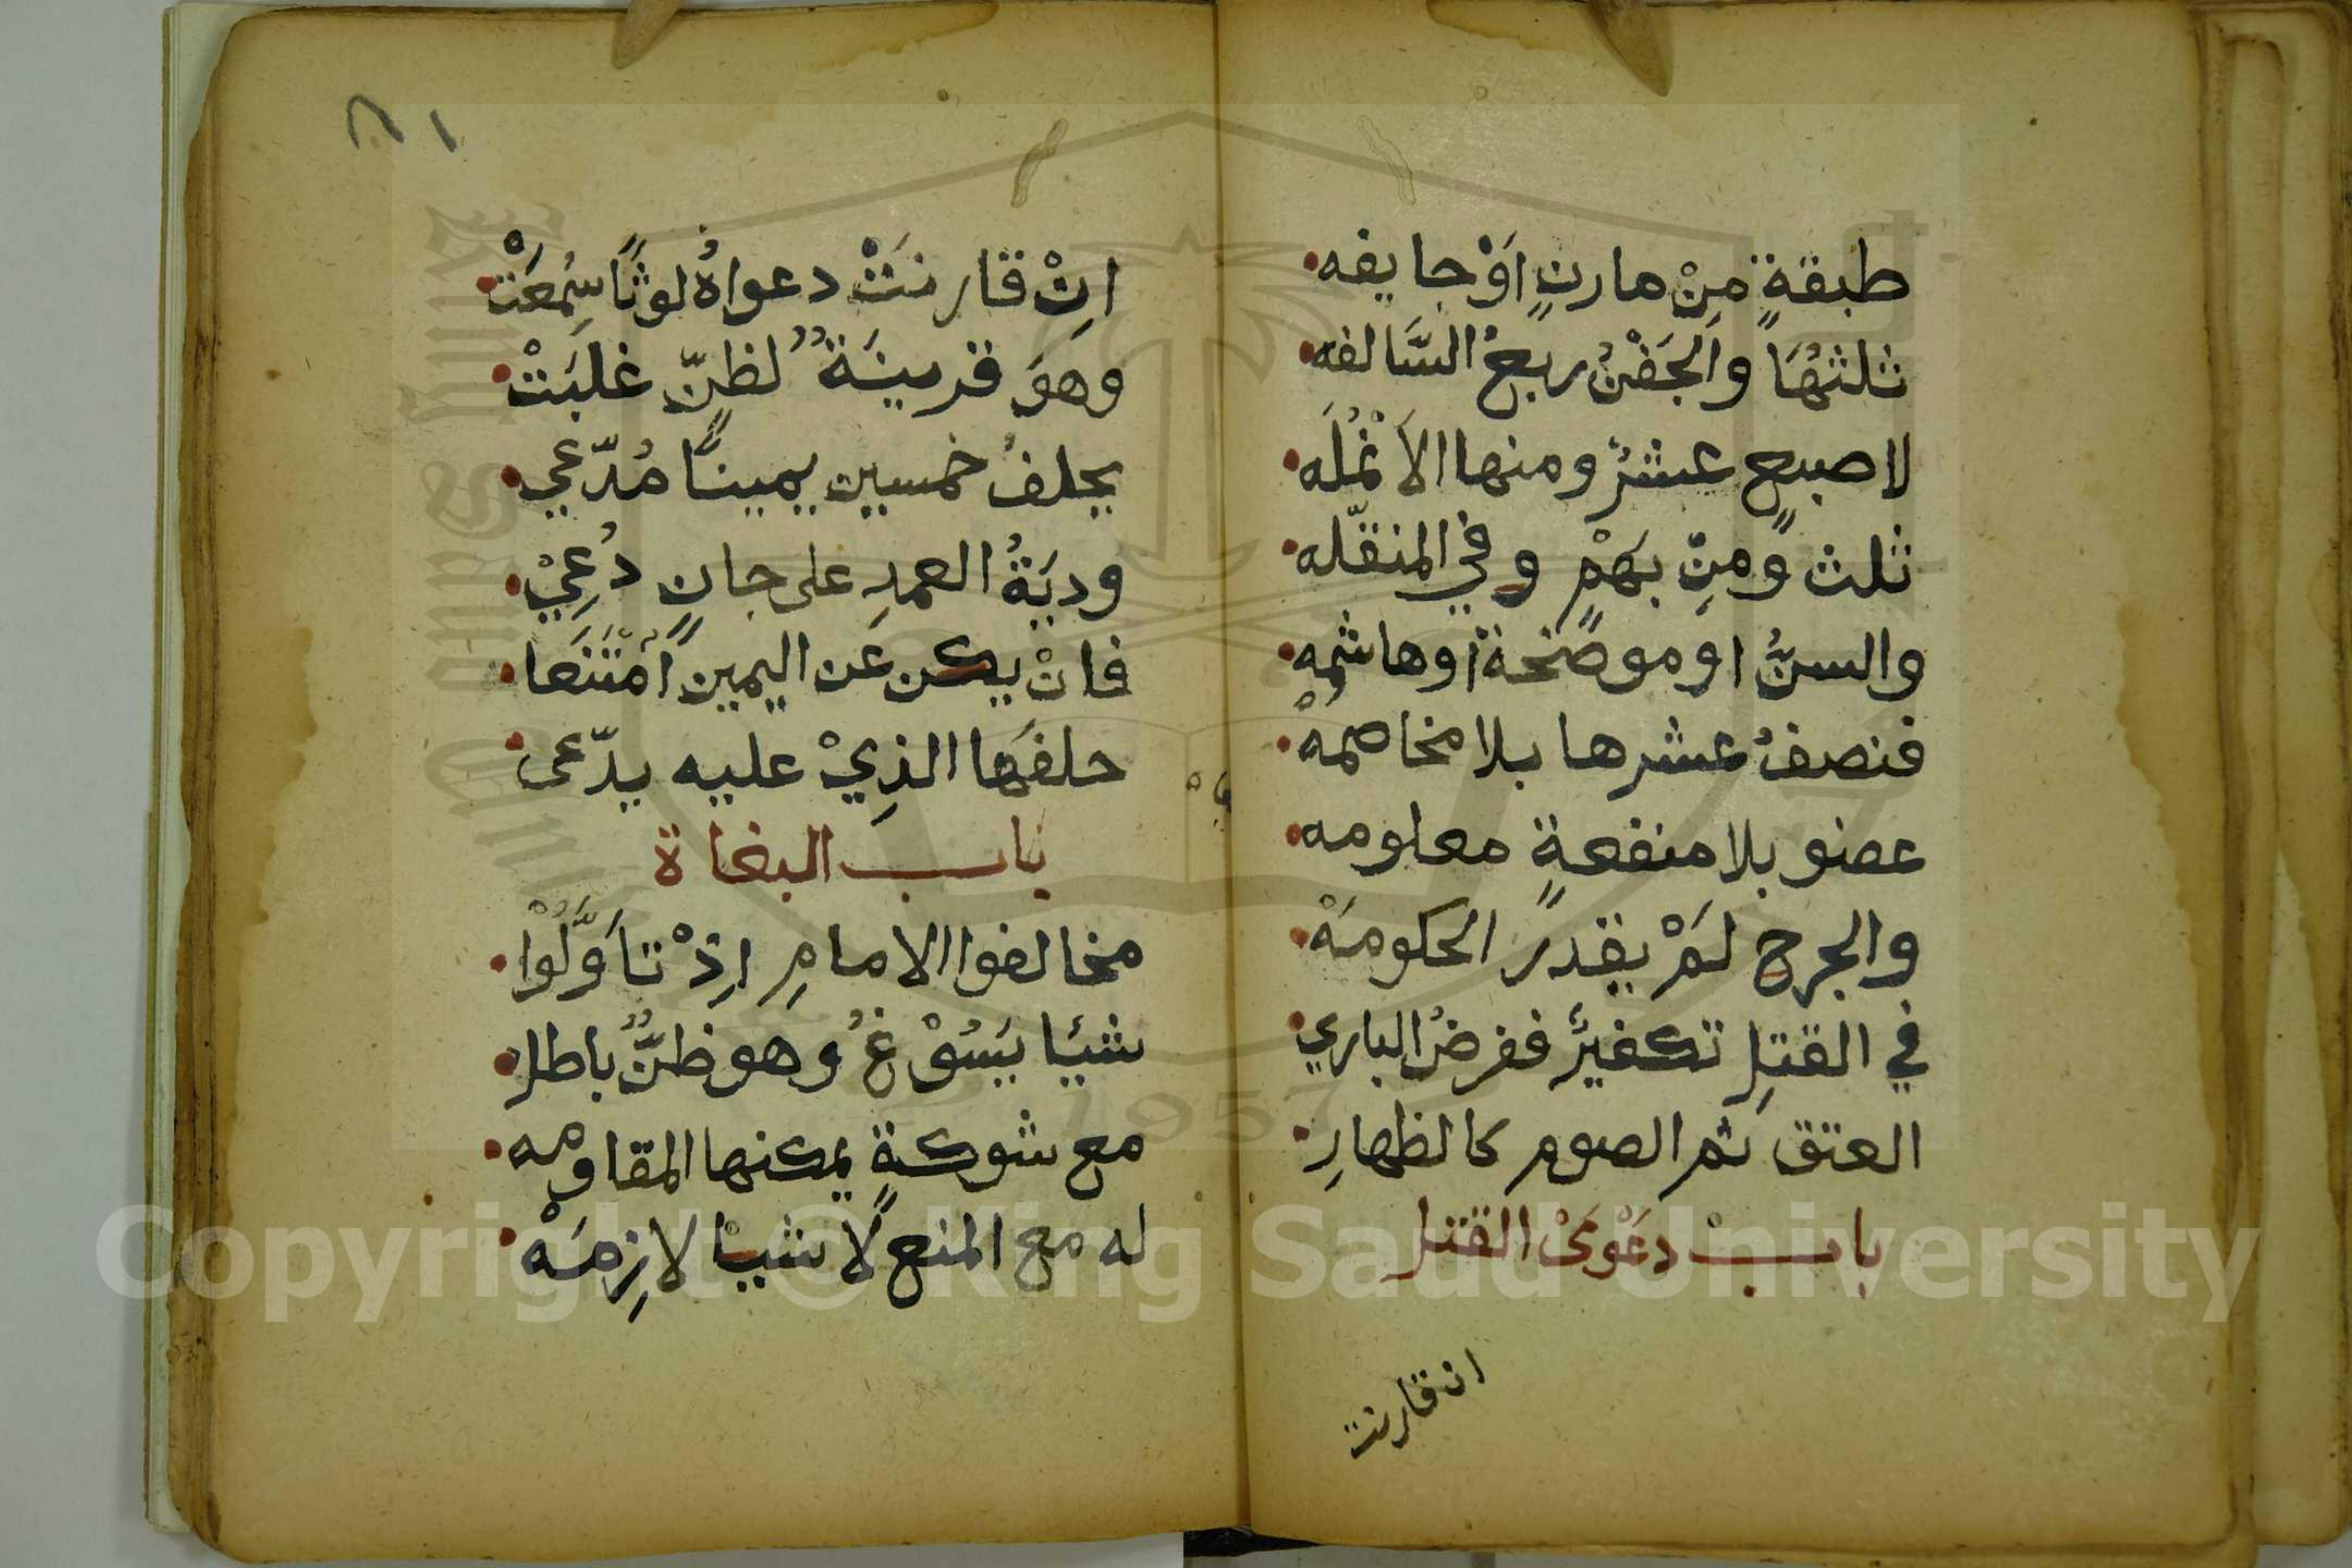 طبقةٍ مِنْ مارنٍ اَوْ جايفه
ثلثهَا والجَفْنُ ربعُ السَّالفه
لاصبع عشرٌ ومنها الاَنمُلَه
ثلث ومِنْ بهَمْ وفي المنقّله
والسنُّ او موضحة اوهاشمه
فنصفُ عشرها بلا مخاصمهْ
عضو بلا منفعةٍ معلومه
والجرح لَمْ يقدر الحكومَهْ
في القتلِ تكفيرٌ ففرضُ الباري
العتق ثم الصوم كالظهارِ
باب دعَوْىَ القتل
ان قارنت
٨١
اِنْ قارنَتْ دعواهُ لوثًا سُمِعَتْ
وهوَ قرينَةٌ لظنٍّ غلبَتْ
يحلفُ خمسين يمينًا مُدّعي
وديَةُ العمدِ على جانٍ دُعِيْ
فانْ يكن عن اليمين اُمْتَنَعا
حلفَها الذِيْ عليه يدّعى
باب البغاة
مخالفوا الامامِ اِذْ تاَوَّلُوْا
شيًا يَسُوْغُ وهو ظنٌّ باطل
مع شوكةٍ يمكنها المقاومه
له مع المنع لاشيا لازِمَهْ
Copyright © King Saud University
1957